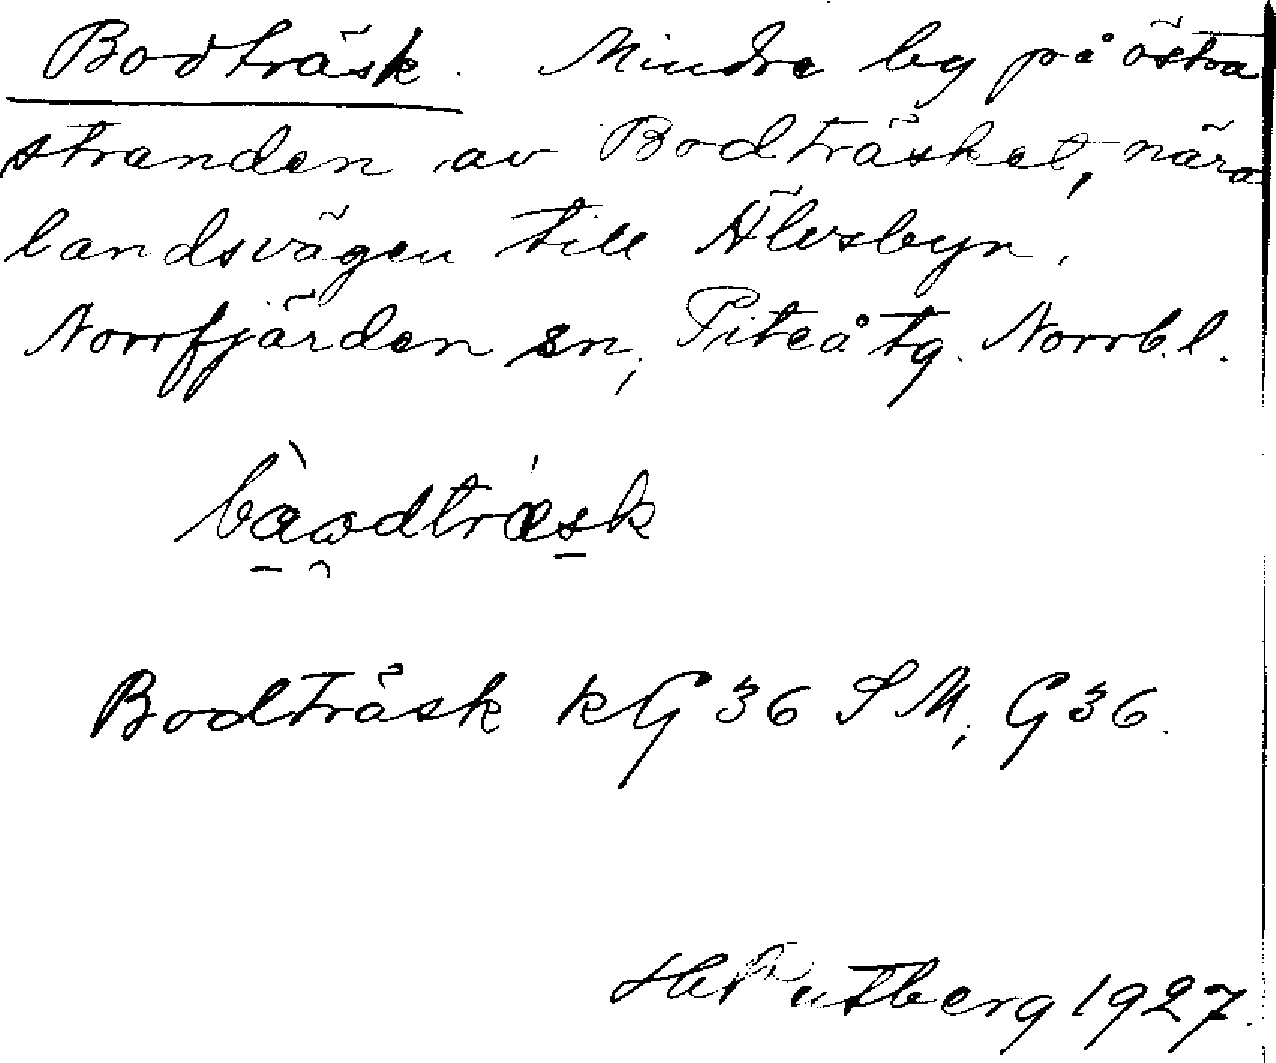 Bodträsk. Mindre by på östra
stranden av Bodträsket, nära
landsvägen till Älvsbyn.
Norrfjärden sn, Piteå tg. Norrb. l.
Bodträsk k G 36 S M, G 36.
1927.